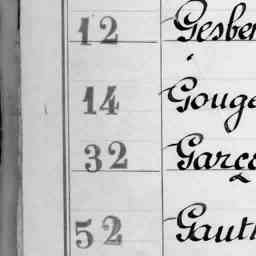 12 Gesber
14 Gouge
32 Garço
52 Gauth